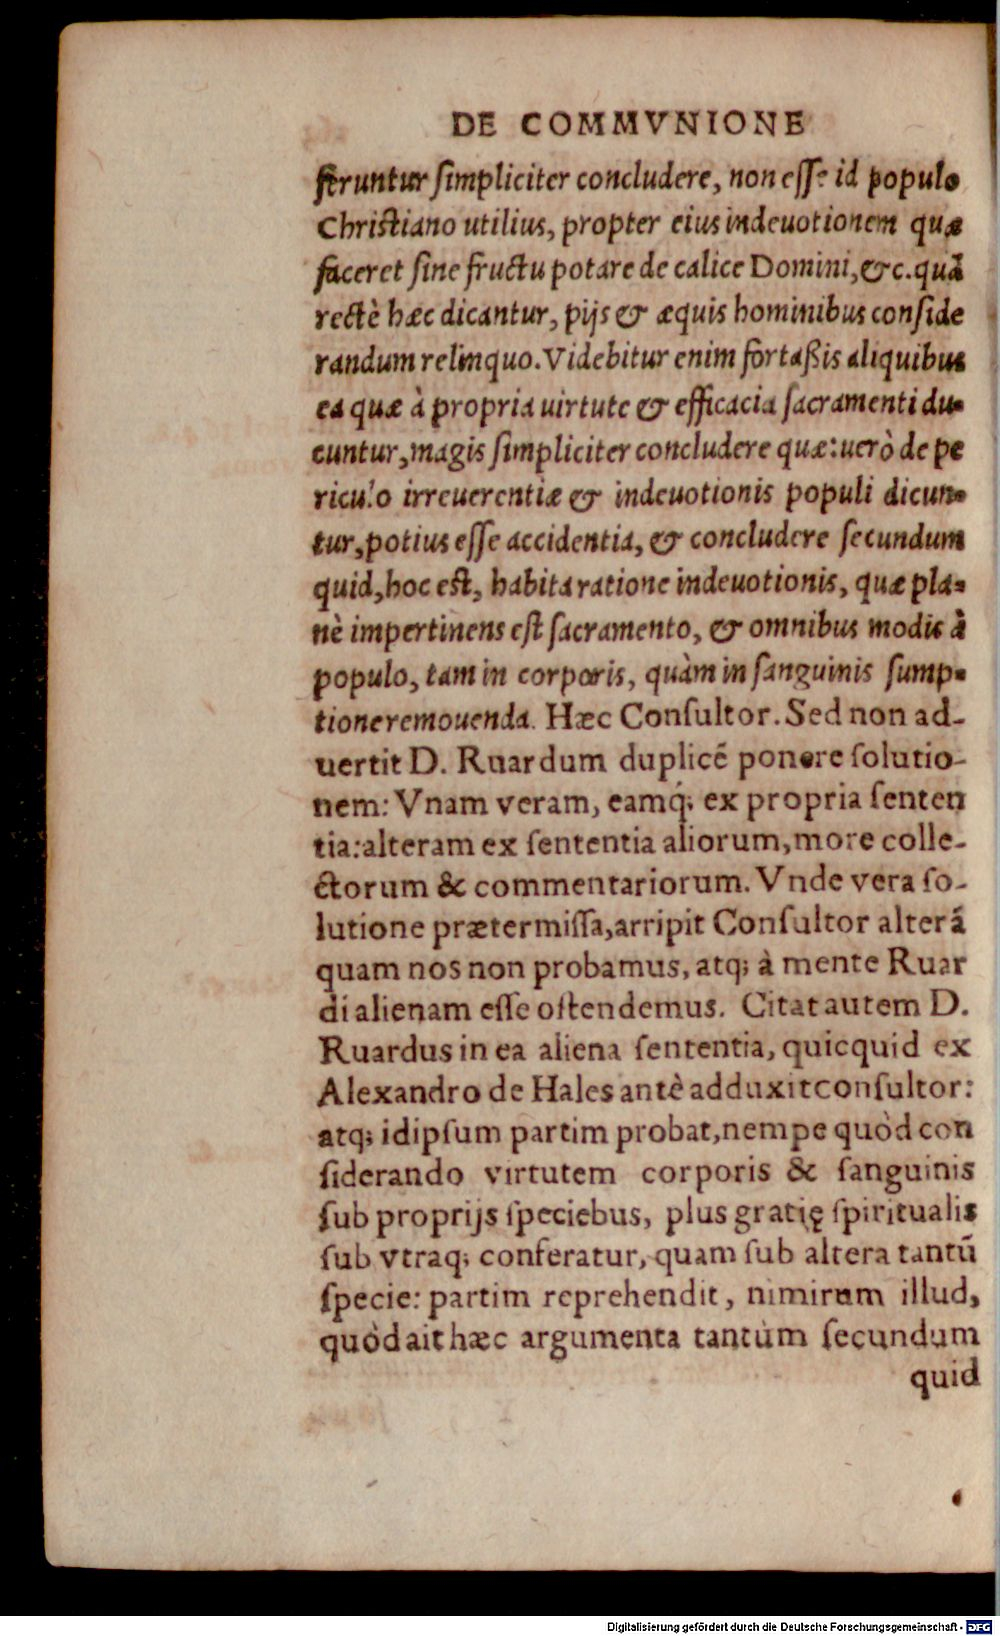 DE COMMVNIONE
feruntur ſimpliciter concludere, non eſſe id populo
Chriſtiano utilius, propter eius indeuotionem quæ
faceret ſine fructu potare de calice Domini, &c. quã
rectè hæc dicantur, pijs & æquis hominibus conſide
randum relinquo. Videbitur enim fortaßis aliquibus
ea quæ à propria uirtute & efficacia ſacramenti du-
cuntur, magis ſimpliciter concludere quæ: uerò de pe
riculo irreuerentiæ & indeuotionis populi dicun-
tur, potius eſſe accidentia, & concludere ſecundum
quid, hoc eſt, habita ratione indeuotionis, quæ pla-
nè impertinens eſt ſacramento, & omnibus modis à
populo, tam in corporis, quàm in ſanguinis ſump-
tione remouenda. Hæc Conſultor. Sed non ad-
uertit D. Ruardum duplicẽ ponere ſolutio-
nem: Vnam veram, eamq́; ex propria ſenten
tia: alteram ex ſententia aliorum, more colle-
ctorum & commentariorum. Vnde vera ſo-
lutione prætermiſſa, arripit Conſultor alterã
quam nos non probamus, atq; à mente Ruar
di alienam eſſe oſtendemus. Citat autem D.
Ruardus in ea aliena ſententia, quicquid ex
Alexandro de Hales antè adduxit conſultor:
atq; idipſum partim probat, nempe quòd con
ſiderando virtutem corporis & ſanguinis
ſub proprijs ſpeciebus, plus gratię ſpiritualis
ſub vtraq; conferatur, quam ſub altera tantũ
ſpecie: partim reprehendit, nimirum illud,
quòd ait hæc argumenta tantùm ſecundum
quid
Digitalisierung gefördert durch die Deutsche Forschungsgemeinschaft - DFG